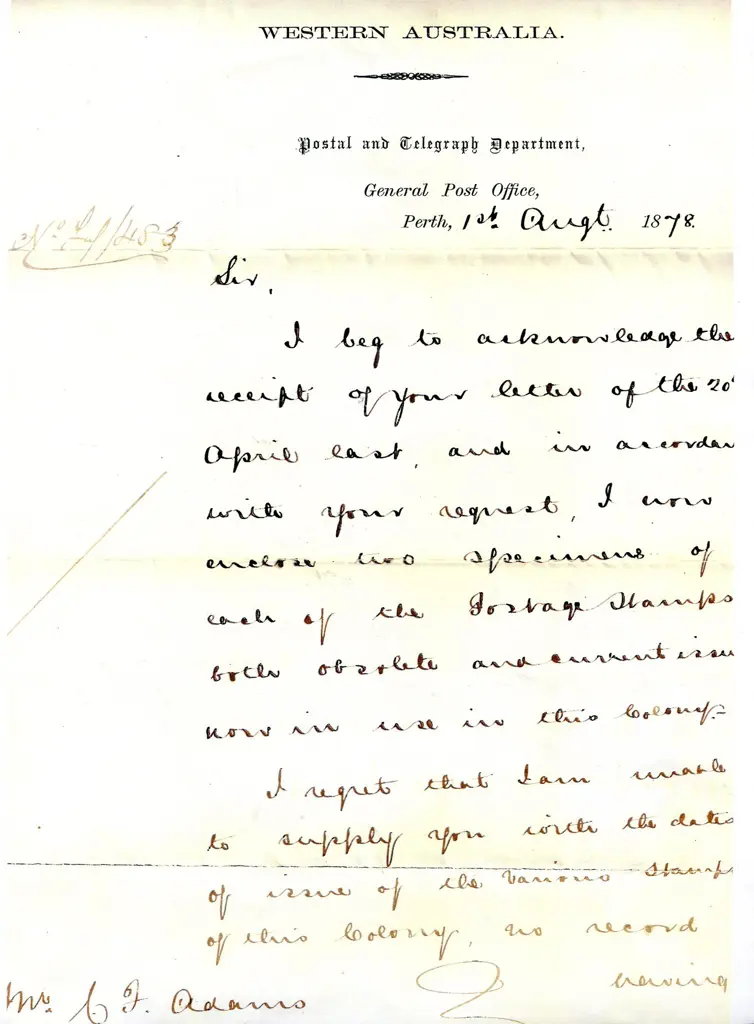 WESTERN AUSTRALIA.
Postal and Telegraph Department,
General Post Office,
Perth, 1st Augt. 1878.
Sir,
I beg to acknowledge the
receipt of your letter of the 20
April last, and in accordan
with your request, I now
enclose two specimens of
each of the Postage Stamps
both obsolete and current issu
now in use in this Colony.=
I regret that I am unable
to supply you with the dates
of issue of the various Stamps
of this Colony, no record
having
Mr. C F. Adams